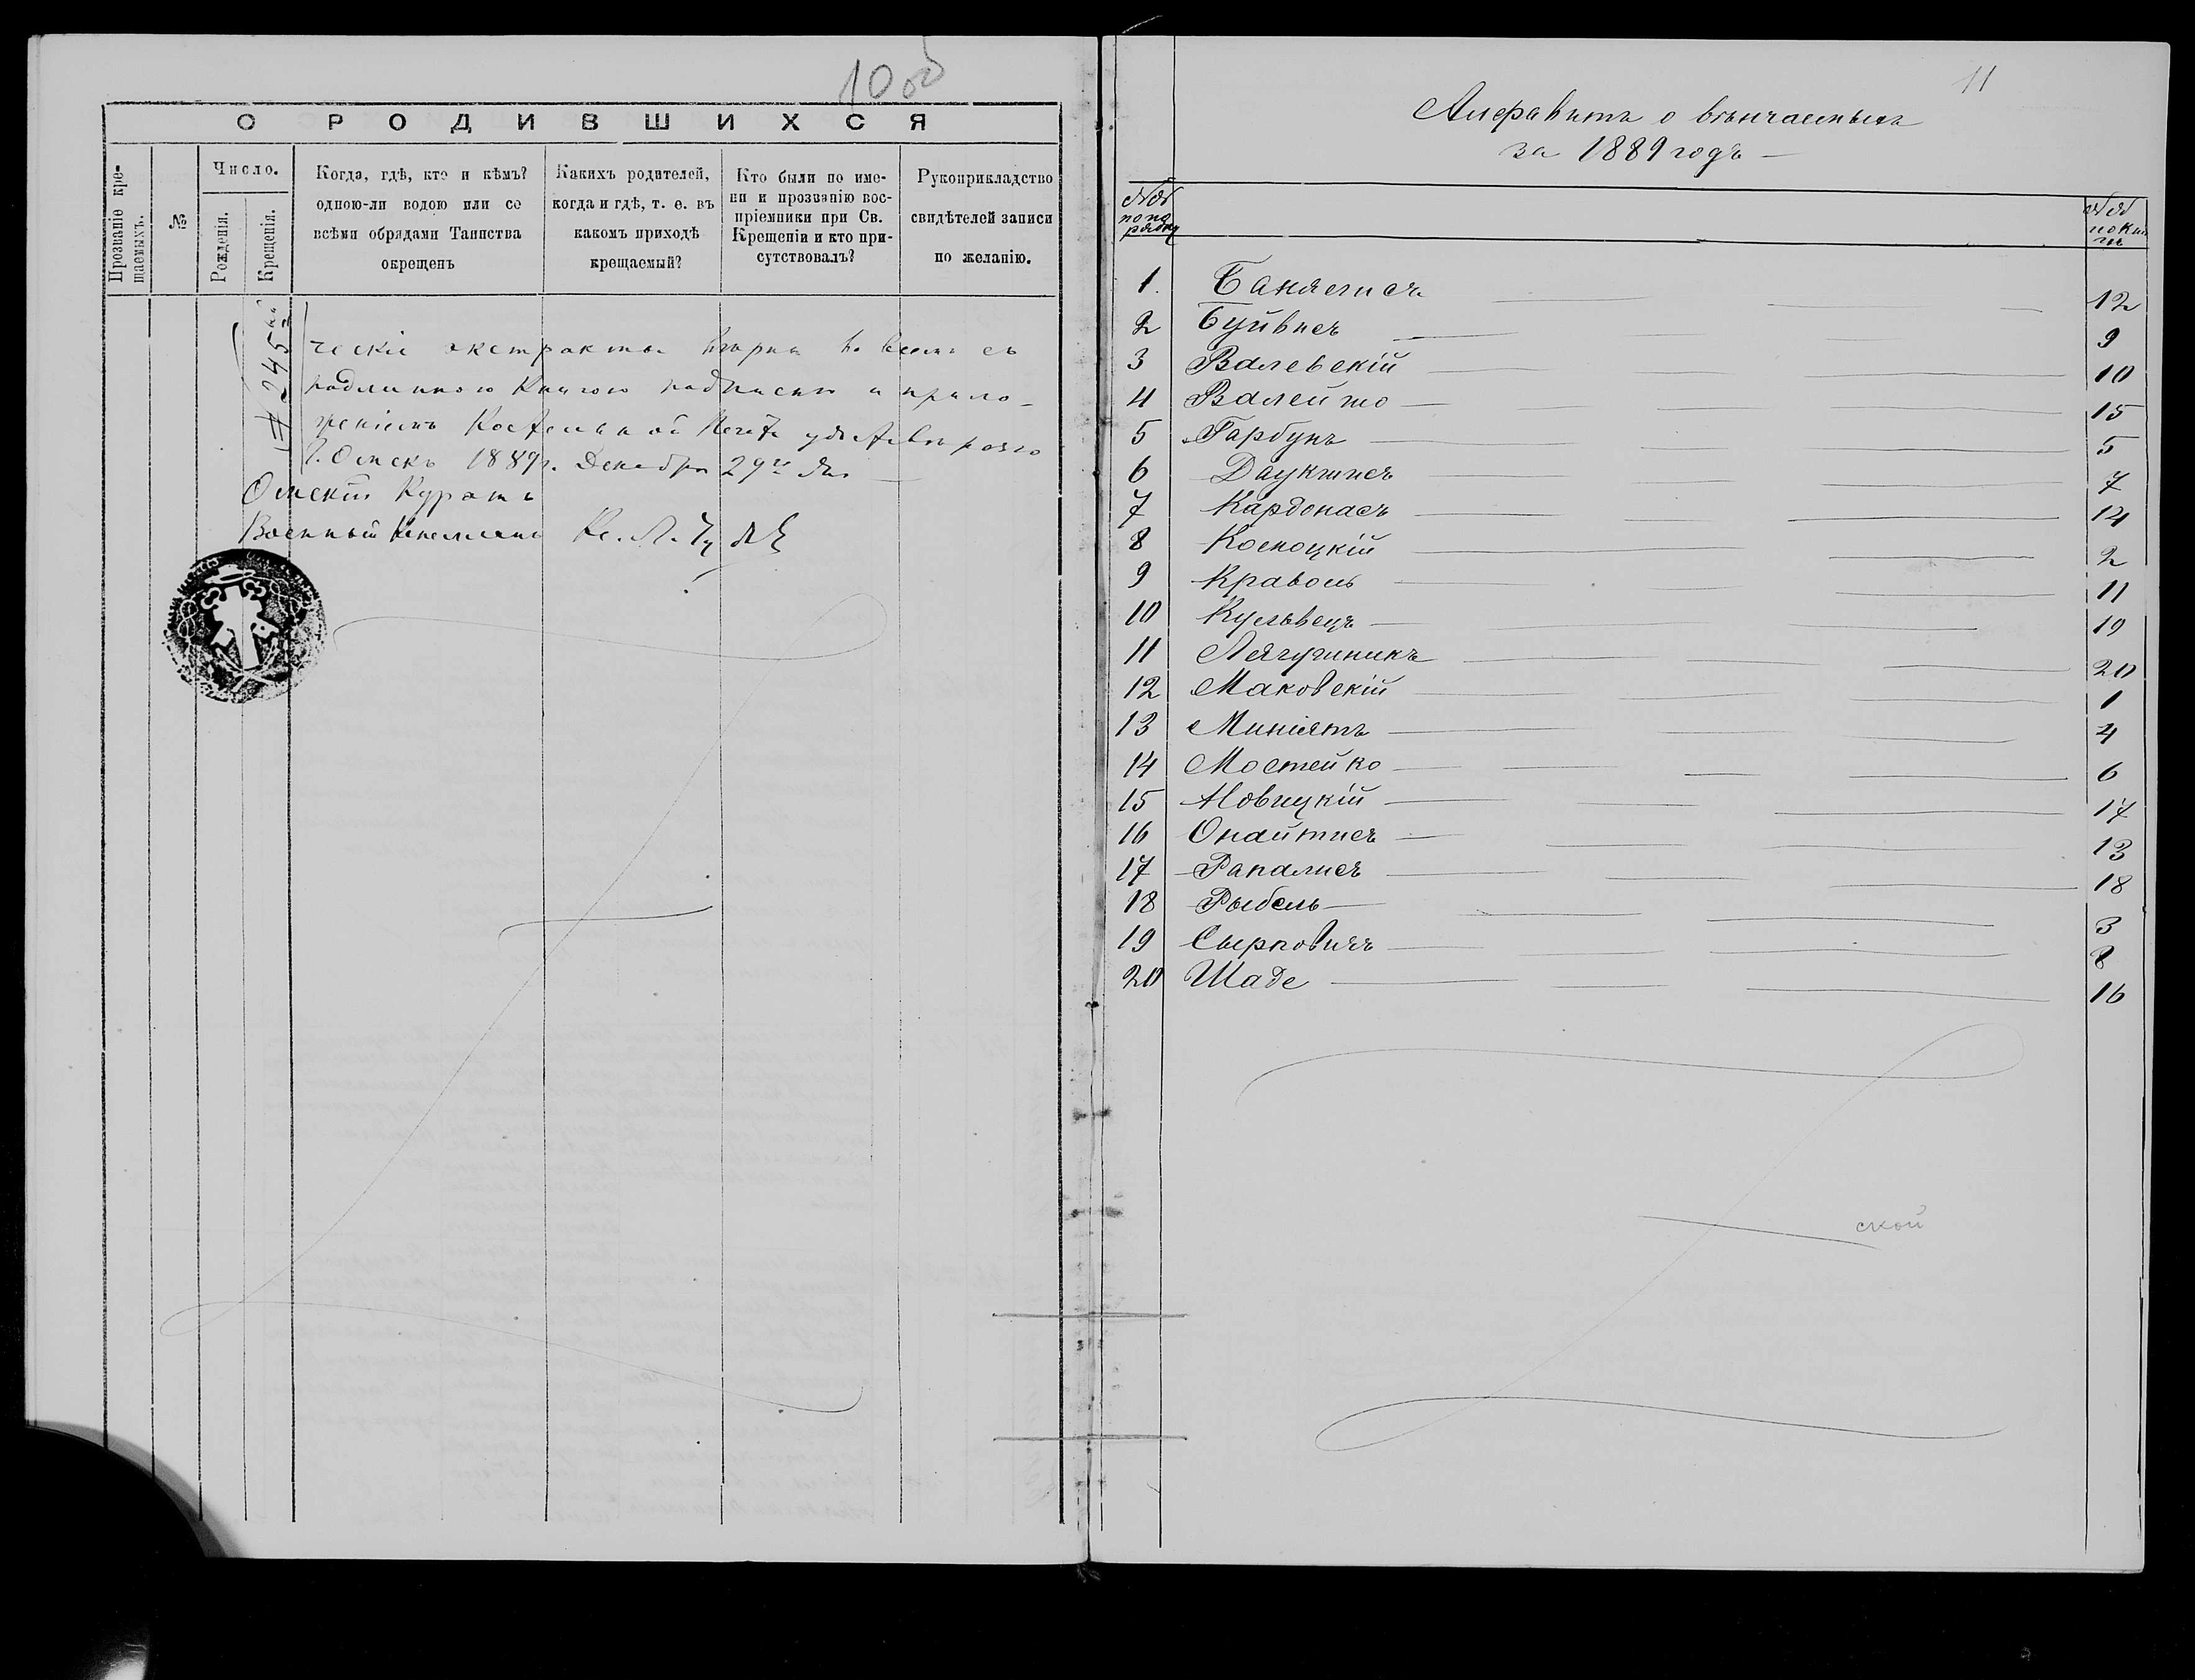 10 об
О РОДИВШИХСЯ
Прозваніе кре-
щаемыхъ.
№
Число.
Рожденія.
Крещенія.
Когда, гдѣ, кто и кѣмъ?
одною-ли водою или со
всѣми обрядами Таинства
окрещенъ
Какихъ родителей,
когда и гдѣ, т. е. въ
какомъ приходѣ
крещаемый?
Кто были по име-
ни и прозванію вос-
пріемники при Св.
Крещеніи и кто при-
сутствовалъ?
Рукоприкладство
свидѣтелей записи
по желанію.
№ 245
ческіе экстракты вѣрны во всемъ съ
подлинною Книгою подписью и прило-
женіемъ Костельной Печати удостовѣряю
Г. Омскъ 1889 г. Декабря 29го дня
Омскій Куратъ
Военный Капелланъ Кс.
11
Алфавитъ о вѣнчаемыхъ
за 1889 годъ
№№ по по рядку
№№ по кни гѣ
1. Баклягисъ 12
2 Буйвисъ 9
3 Валевскій 10
4 Валейто 15
5 Гарбунъ 5
6 Даукшисъ 7
7 Кардокасъ 14
8 Косноцкій 2
9 Краволь 11
10 Кульвецъ 19
11 20
12 Маковскій 1
13 Миніятъ 4
14 Мостейко 6
15 Новицкій 17
16 Онайтисъ 13
17 Рапалисъ 18
18 Рыбель 3
19 Сырповичъ 8
20 Шаде 16
ской